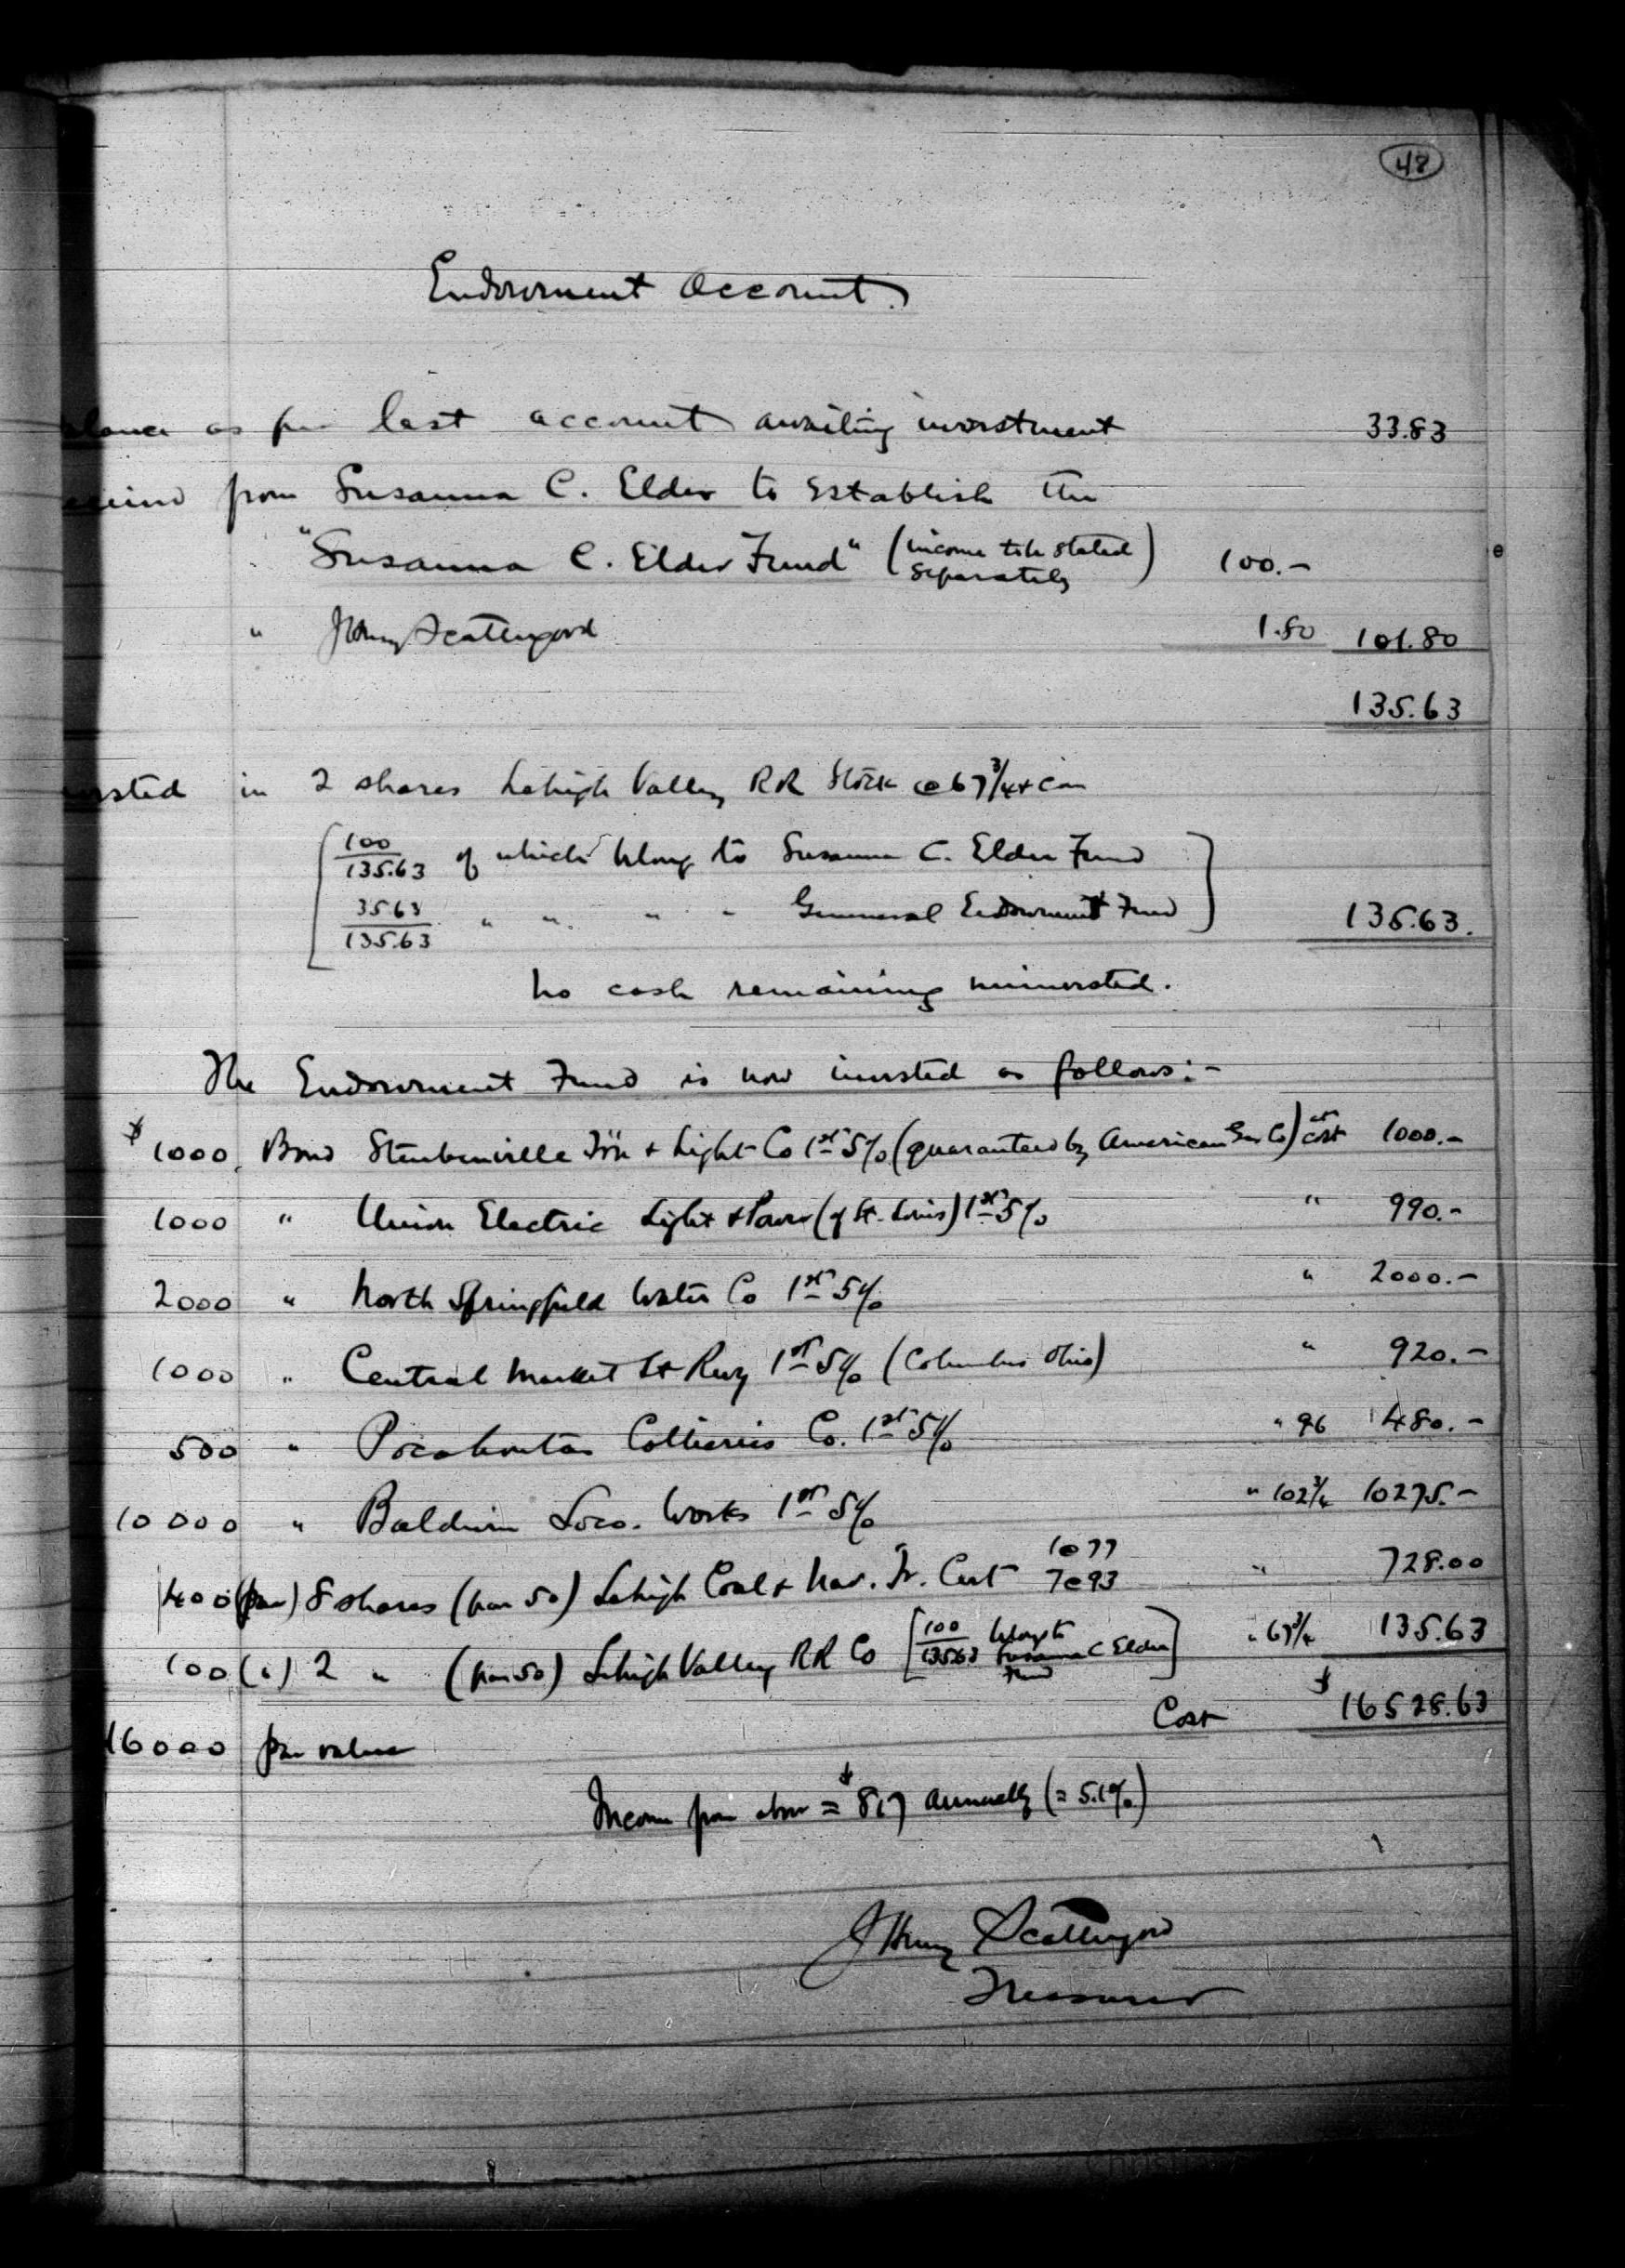 48
Endowment Account.
as per last account awaiting investment 33.83
from Susanna C. Elder to establish the
"Susanna C. Elder Fund" (income to be stated separately) 100.–
" J Henry Scattergood 1.80 101.80
135.63
in 2 shares Lehigh Valley RR Stock @ 67 3/4 + com
[100/135.63 of which belong to Susanna C. Elder Fund
3563/135.63 " " " " General Endowment Fund] 135.63.
No cash remaining uninvested.
The Endowment Fund is now invested as follows:–
$1000 Bond Steubenville + Light Co 1st 5% (guaranteed by American Gas Co) at cost 1000.–
1000 " Union Electric Light & Power (of St. Louis) 1st 5% " 990.–
2000 " North Springfield Water Co 1st 5% " 2000.–
1000 " Central Market St Rwy 1st 5% (Columbus Ohio) " 920.–
500 " Pocahontas Collieries Co. 1st 5% " 96 480.–
10000 " Baldwin Loco. Works 1st 5% " 102 3/4 10275.–
400 (par) 8 shares (par 50) Lehigh Coal & Nav. Tr. Cert 1@77 7@93 " 728.00
100 (") 2 " (par 50) Lehigh Valley RR Co [100/135.63 belongs to Susanna C Elder Fund] " 67 3/4 135.63
Cost $16528.63
16000 par value
Income from above = $817 annually (= 5.1%)
J Henry Scattergood
Treasurer